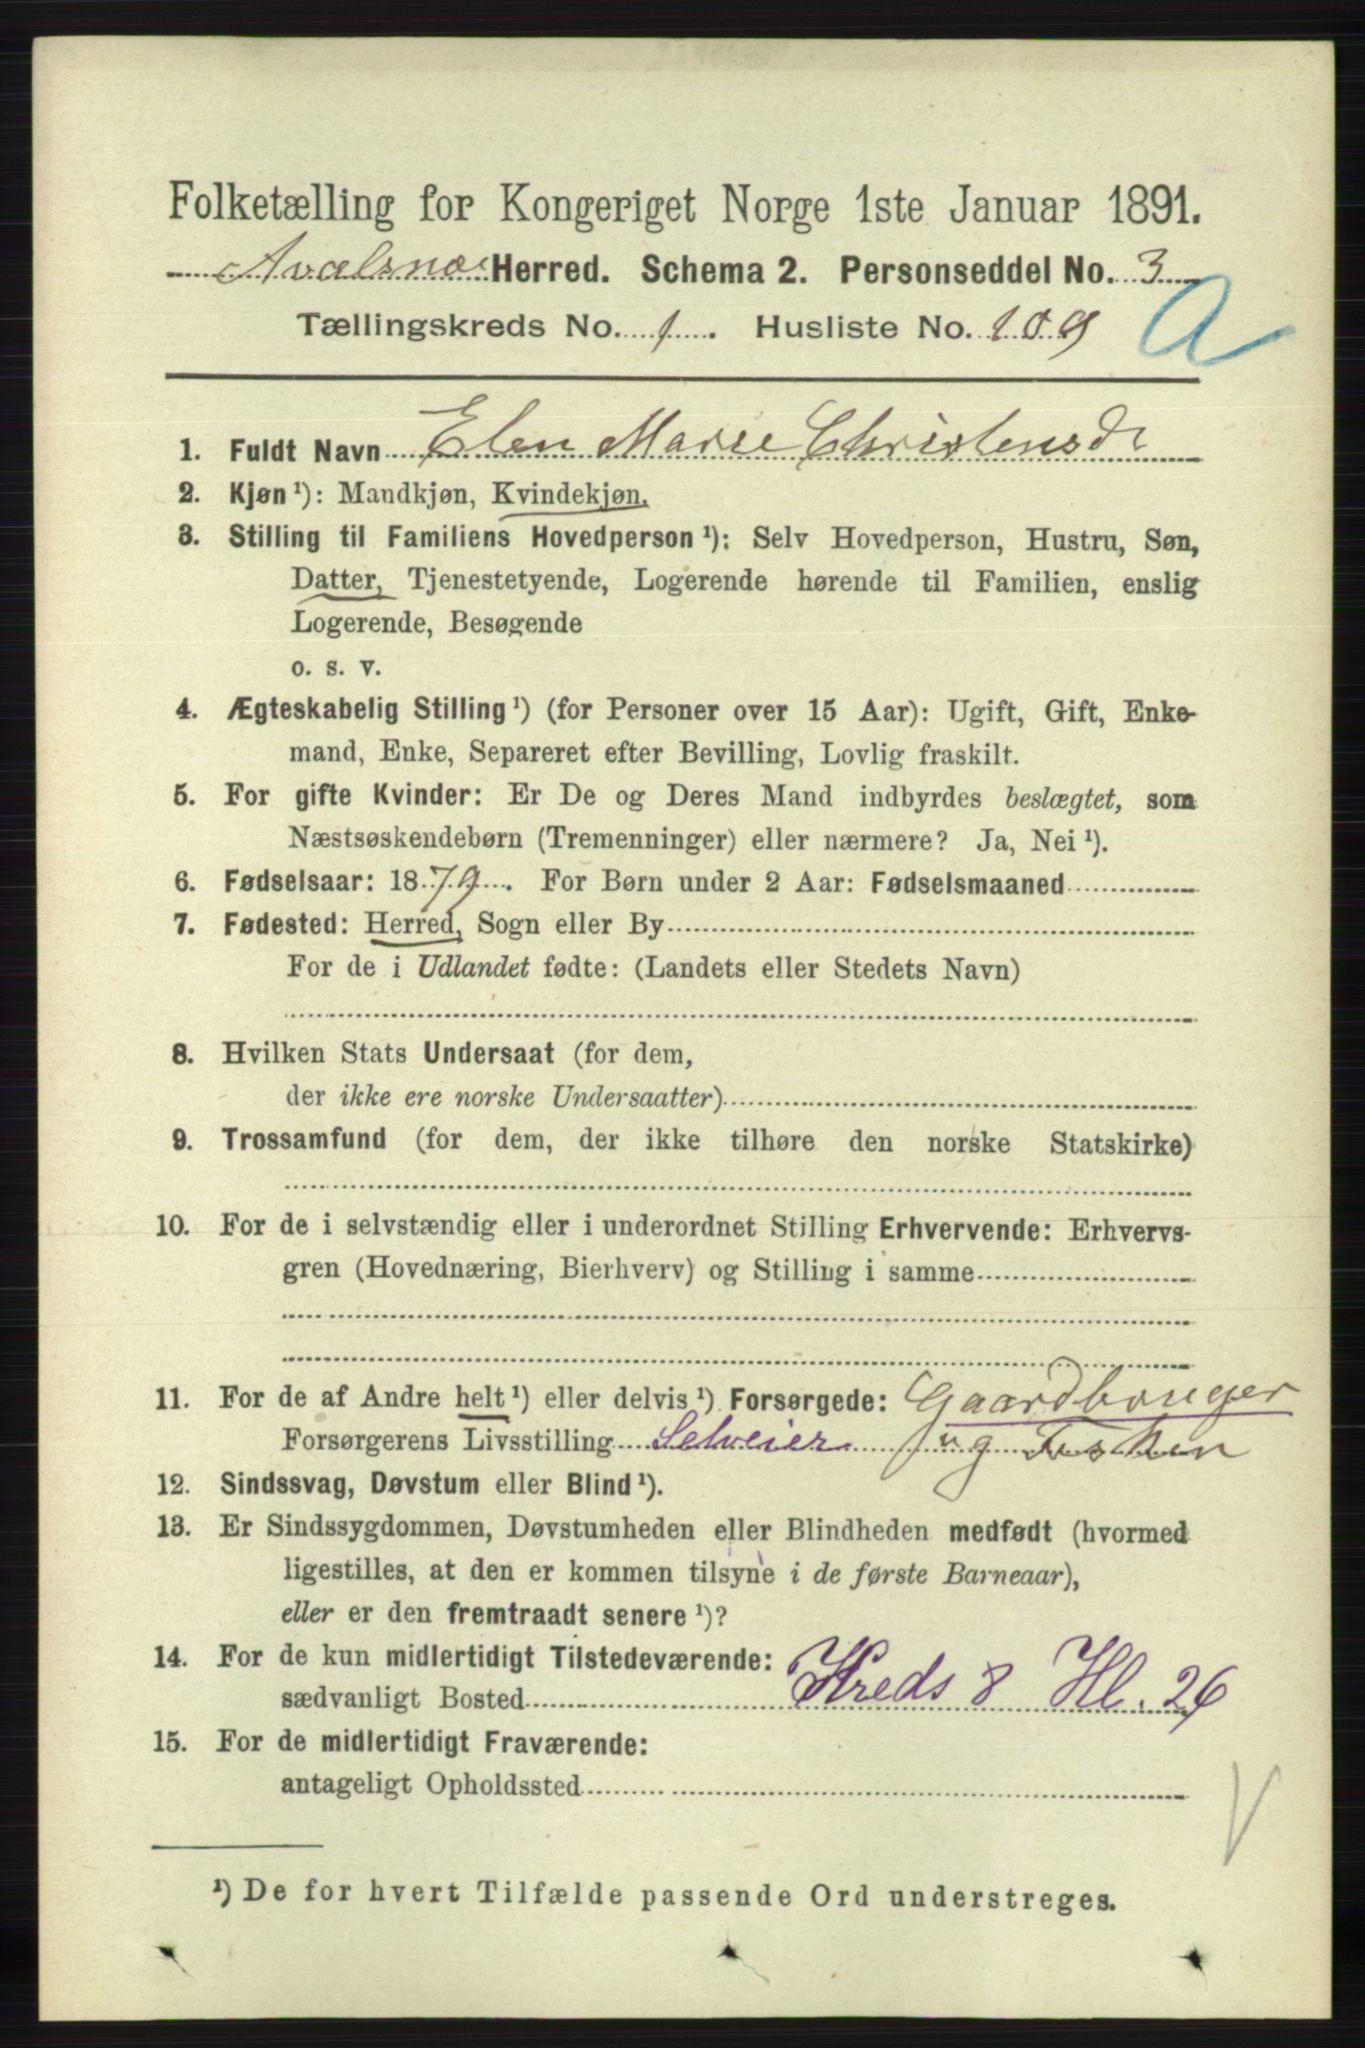 Folketælling for Kongeriget Norge 1ste Januar 1891.
Avalsnæs Herred. Schema 2. Personseddel No. 3
Tællingskreds No. 1. Husliste No. 109
A
1. Fuldt Navn Elen Marie Christensdr
2. Kjøn ¹): Mandkjøn, Kvindekjøn.
3. Stilling til Familiens Hovedperson ¹): Selv Hovedperson, Hustru, Søn,
Datter, Tjenestetyende, Logerende hørende til Familien, enslig
Logerende, Besøgende
o. s. v.
4. Ægteskabelig Stilling ¹) (for Personer over 15 Aar): Ugift, Gift, Enke-
mand, Enke, Separeret efter Bevilling, Lovlig fraskilt.
5. For gifte Kvinder: Er De og Deres Mand indbyrdes beslægtet, som
Næstsøskendebørn (Tremenninger) eller nærmere? Ja, Nei ¹).
6. Fødselsaar: 1879. For Børn under 2 Aar: Fødselsmaaned
7. Fødested: Herred, Sogn eller By
For de i Udlandet fødte: (Landets eller Stedets Navn)
8. Hvilken Stats Undersaat (for dem,
der ikke ere norske Undersaatter)
9. Trossamfund (for dem, der ikke tilhøre den norske Statskirke)
10. For de i selvstændig eller i underordnet Stilling Erhvervende: Erhvervs-
gren (Hovednæring, Bierhverv) og Stilling i samme
11. For de af Andre helt ¹) eller delvis ¹) Forsørgede: Gaardbruger
Forsørgerens Livsstilling Selveier og Fisker
12. Sindssvag, Døvstum eller Blind ¹).
13. Er Sindssygdommen, Døvstumheden eller Blindheden medfødt (hvormed
ligestilles, at den er kommen tilsyne i de første Barneaar),
eller er den fremtraadt senere ¹)?
14. For de kun midlertidigt Tilstedeværende:
sædvanligt Bosted Kreds 8 Hl. 26
15. For de midlertidigt Fraværende:
antageligt Opholdssted
V
¹) De for hvert Tilfælde passende Ord understreges.